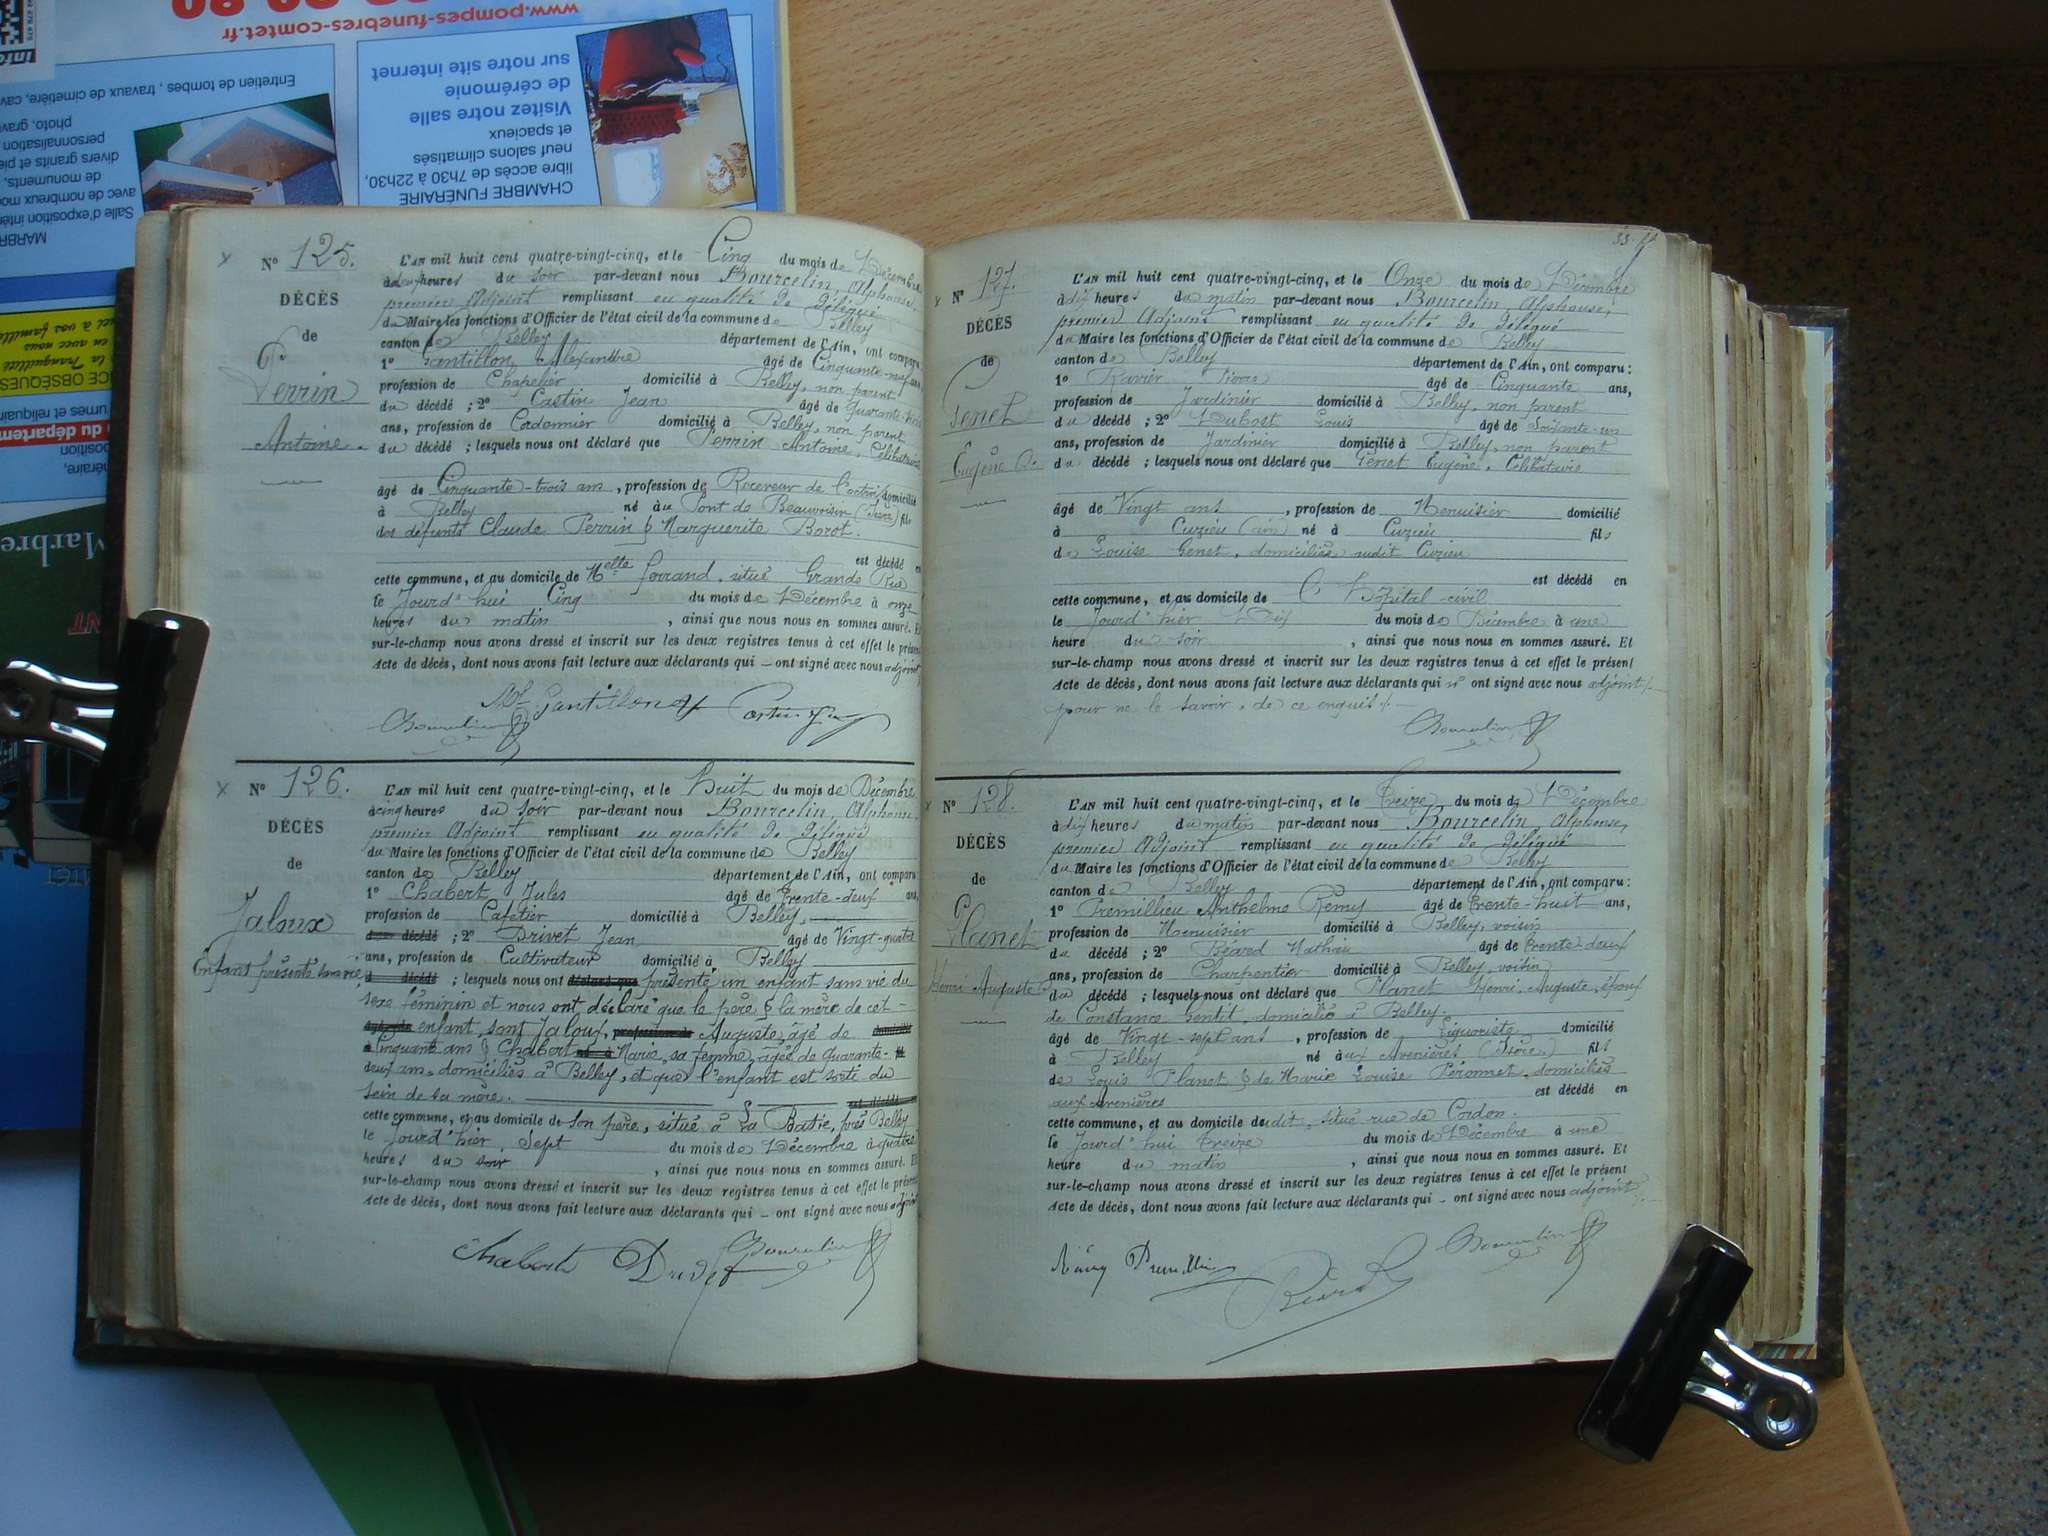 www.pompes-funebres-comtet.fr
Entretien de tombes, travaux de cimetière, cav
photo, grav
personnalisation
divers granits et pie
de monuments,
avec de nombreux mo
Salle d'exposition intér
MARBR
Visitez notre salle
de cérémonie
sur notre site internet
CHAMBRE FUNÉRAIRE
libre accès de 7h30 à 22h30,
neuf salons climatisés
et spacieux
N° 125.
DÉCÈS
de
Perrin
Antoine.
L'AN mil huit cent quatre-vingt-cinq, et le Cinq du mois de Décembre
à deux heures du soir par-devant nous Bourcelin, Alphonse,
premier Adjoint remplissant en qualité de délégué
du Maire les fonctions d'Officier de l'état civil de la commune de Belley
canton de Belley département de l'Ain, ont comparu
1° Gantillon Alexandre âgé de Cinquante-neuf ans
profession de Chapelier domicilié à Belley, non parent
du décédé ; 2° Castin Jean âgé de quarante-trois
ans, profession de Cordonnier domicilié à Belley, non parent
du décédé ; lesquels nous ont déclaré que Perrin Antoine, Célibataire
âgé de Cinquante-trois ans, profession de Receveur de l'octroi domicilié
à Belley né au Pont de Beauvoisin (Isère) fils
des défunts Claude Perrin & Marguerite Borot.
est décédé en
cette commune, et au domicile de Melle Gorrand, situé Grande Rue
le Jourd'hui Cinq du mois de Décembre à onze
heures du matin, ainsi que nous nous en sommes assuré. Et
sur-le-champ nous avons dressé et inscrit sur les deux registres tenus à cet effet le présent
Acte de décès, dont nous avons fait lecture aux déclarants qui – ont signé avec nous adjoint
Gantillon Castin Jean
Bourcelin
N° 126.
DÉCÈS
de
Jaloux
Enfant présenté sans vie
L'AN mil huit cent quatre-vingt-cinq, et le Huit du mois de Décembre
à cinq heures du soir par-devant nous Bourcelin, Alphonse,
premier Adjoint remplissant en qualité de délégué
du Maire les fonctions d'Officier de l'état civil de la commune de Belley
canton de Belley département de l'Ain, ont comparu
1° Chabert Jules âgé de Trente-deux ans,
profession de Cafetier domicilié à Belley,
décédé ; 2° Drivet Jean âgé de Vingt-quatre
ans, profession de Cultivateur domicilié à Belley
d décédé ; lesquels nous ont déclaré que présenté un enfant sans vie du
sexe féminin et nous ont déclaré que le père & la mère de cet
enfant sont Jaloux, profession de Auguste, âgé de
Cinquante ans & Chabert Marie, sa femme, âgée de quarante-
deux ans, domiciliés à Belley, et que l'enfant est sorti du
sein de sa mère. est décédé
cette commune, et au domicile de son père, situé à La Batie, près Belley
le Jourd'hier Sept du mois de Décembre à quatre
heures du soir, ainsi que nous nous en sommes assuré. Et
sur-le-champ nous avons dressé et inscrit sur les deux registres tenus à cet effet le présent
Acte de décès, dont nous avons fait lecture aux déclarants qui – ont signé avec nous adjoint
Chabert Drivet Bourcelin
N° 127.
DÉCÈS
de
Genet
Eugène
L'AN mil huit cent quatre-vingt-cinq, et le Onze du mois de Décembre
à dix heures du matin par-devant nous Bourcelin, Alphonse,
premier Adjoint remplissant en qualité de délégué
du Maire les fonctions d'Officier de l'état civil de la commune de Belley
canton de Belley département de l'Ain, ont comparu :
1° Ravier Pierre âgé de Cinquante ans,
profession de Jardinier domicilié à Belley, non parent
du décédé ; 2° Dubost Louis âgé de Soixante-un
ans, profession de Jardinier domicilié à Belley, non parent
du décédé ; lesquels nous ont déclaré que Genet Eugène, Célibataire
âgé de Vingt ans, profession de Menuisier domicilié
à Cuzieu (Ain) né à Cuzieu fils
de Louise Genet, domiciliée audit Cuzieu
est décédé en
cette commune, et au domicile de l'Hôpital-civil
le Jourd'hier Dix du mois de Décembre à une
heure du soir, ainsi que nous nous en sommes assuré. Et
sur-le-champ nous avons dressé et inscrit sur les deux registres tenus à cet effet le présent
Acte de décès, dont nous avons fait lecture aux déclarants qui n' ont signé avec nous adjoint
pour ne le savoir, de ce enquis
Bourcelin
N° 128.
DÉCÈS
de
Planet
Henri Auguste
L'AN mil huit cent quatre-vingt-cinq, et le Treize du mois de Décembre
à dix heures du matin par-devant nous Bourcelin, Alphonse,
premier Adjoint remplissant en qualité de délégué
du Maire les fonctions d'Officier de l'état civil de la commune de Belley
canton de Belley département de l'Ain, ont comparu :
1° Premillieu Anthelme Remy âgé de Trente-huit ans,
profession de Menuisier domicilié à Belley, voisin
du décédé ; 2° Béard Mathieu âgé de trente-deux
ans, profession de Charpentier domicilié à Belley, voisin
du décédé ; lesquels nous ont déclaré que Planet Henri-Auguste, époux
de Constance Gentit, domicilié à Belley.
âgé de Vingt-sept ans, profession de Liquoriste domicilié
à Belley né aux Avenières (Isère) fils
de Louis Planet & de Marie Louise Peronnet, domiciliés
aux Avenières est décédé en
cette commune, et au domicile dudit, situé rue de Cordon.
le Jourd'hui Treize du mois de Décembre à une
heure du matin, ainsi que nous nous en sommes assuré. Et
sur-le-champ nous avons dressé et inscrit sur les deux registres tenus à cet effet le présent
Acte de décès, dont nous avons fait lecture aux déclarants qui – ont signé avec nous adjoint
Rémy Premillieu Béard Bourcelin